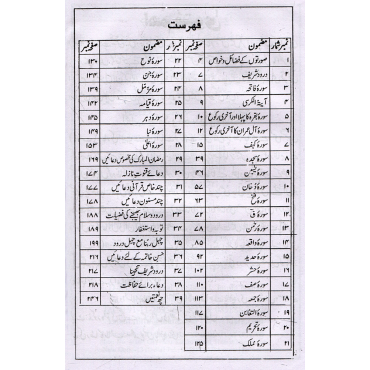 فہرست
نمبر شمار مضمون صفحہ نمبر نمبر شمار مضمون صفحہ نمبر
۱ صورتوں کے فضائل و خواص ۴ ۲۲ سورۂ نوح ۱۳۰
۲ درود شریف ۷ ۲۳ سورۂ جن ۱۳۴
۳ سورۂ فاتحہ ۸ ۲۴ سورۂ مزمل ۱۳۹
۴ آیۃ الکرسی ۹ ۲۵ سورۂ قیامہ ۱۴۲
۵ سورۂ بقرہ کا پہلا اور آخری رکوع ۱۰ ۲۶ سورۂ دہر ۱۴۵
۶ سورۂ آل عمران کا آخری رکوع ۱۲ ۲۷ سورۂ نبا ۱۴۹
۷ سورۂ کہف ۱۵ ۲۸ سورۂ اعلیٰ ۱۵۳
۸ سورۂ سجدہ ۳۹ ۲۹ رمضان المبارک کی مخصوص دعائیں ۱۶۹
۹ سورۂ یٰسین ۴۶ ۳۰ دعائے قنوت نازلہ ۱۷۴
۱۰ سورۂ دخان ۵۷ ۳۱ چند خاص قرآنی دعائیں ۱۷۷
۱۱ سورۂ فتح ۶۳ ۳۲ چند مسنون دعائیں ۱۷۸
۱۲ سورۂ ق ۷۲ ۳۳ درود و سلام بھیجنے کی فضیلت ۱۸۸
۱۳ سورۂ رحمٰن ۷۸ ۳۴ توبہ و استغفار ۱۸۹
۱۴ سورۂ واقعہ ۸۵ ۳۵ چہل ربنا مع چہل درود ۱۹۹
۱۵ سورۂ حدید ۹۲ ۳۶ حسن خاتمہ کے لئے دعائیں ۲۱۶
۱۶ سورۂ حشر ۱۰۲ ۳۷ درود شریف تنجینا ۲۱۷
۱۷ سورۂ صف ۱۰۹ ۳۸ دعاء برائے حفاظت ۲۱۸
۱۸ سورۂ جمعہ ۱۱۳ ۳۹ چھ نعتیں ۲۴۶
۱۹ سورۂ التغابن ۱۱۷
۲۰ سورۂ تحریم ۱۲۰
۲۱ سورۂ ملک ۱۲۵